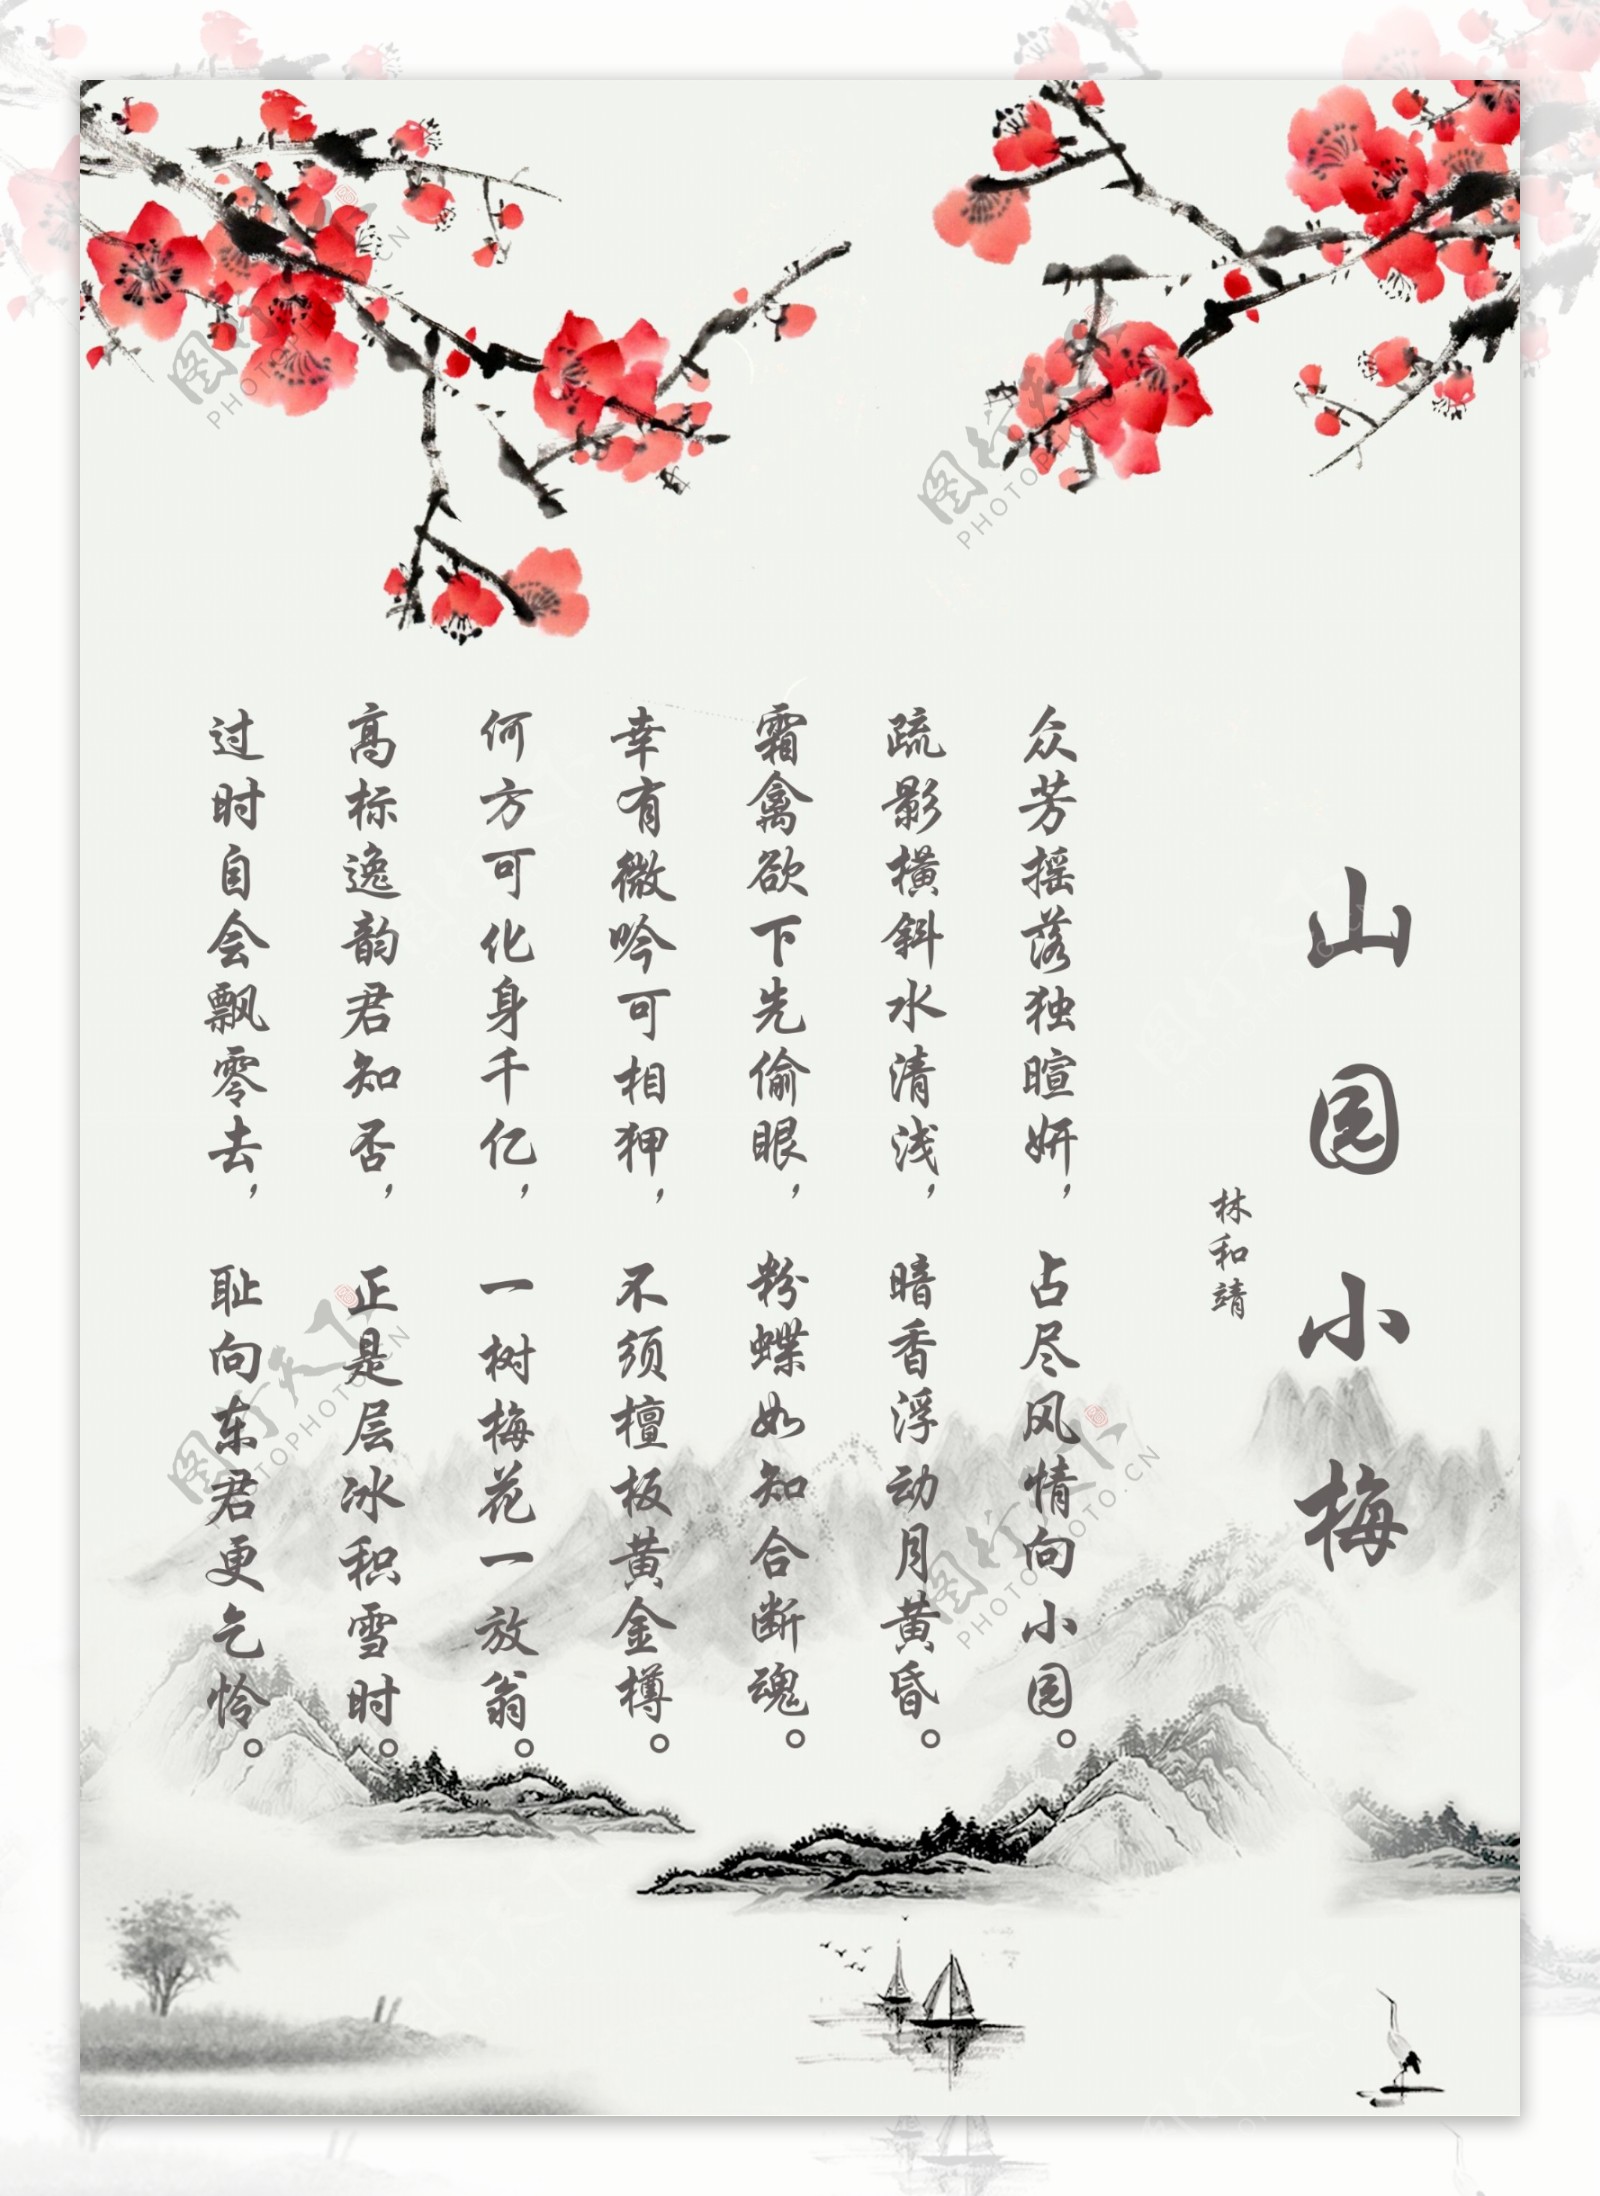 山园小梅
林和靖
众芳摇落独暄妍，占尽风情向小园。
疏影横斜水清浅，暗香浮动月黄昏。
霜禽欲下先偷眼，粉蝶如知合断魂。
幸有微吟可相狎，不须檀板黄金樽。
何方可化身千亿，一树梅花一放翁。
高标逸韵君知否，正是层冰积雪时。
过时自会飘零去，耻向东君更乞怜。
图行天下
PHOTOPHOTO.CN
图行天下
PHOTOPHOTO.CN
图行天下
PHOTOPHOTO.CN
图行天下
PHOTOPHOTO.CN